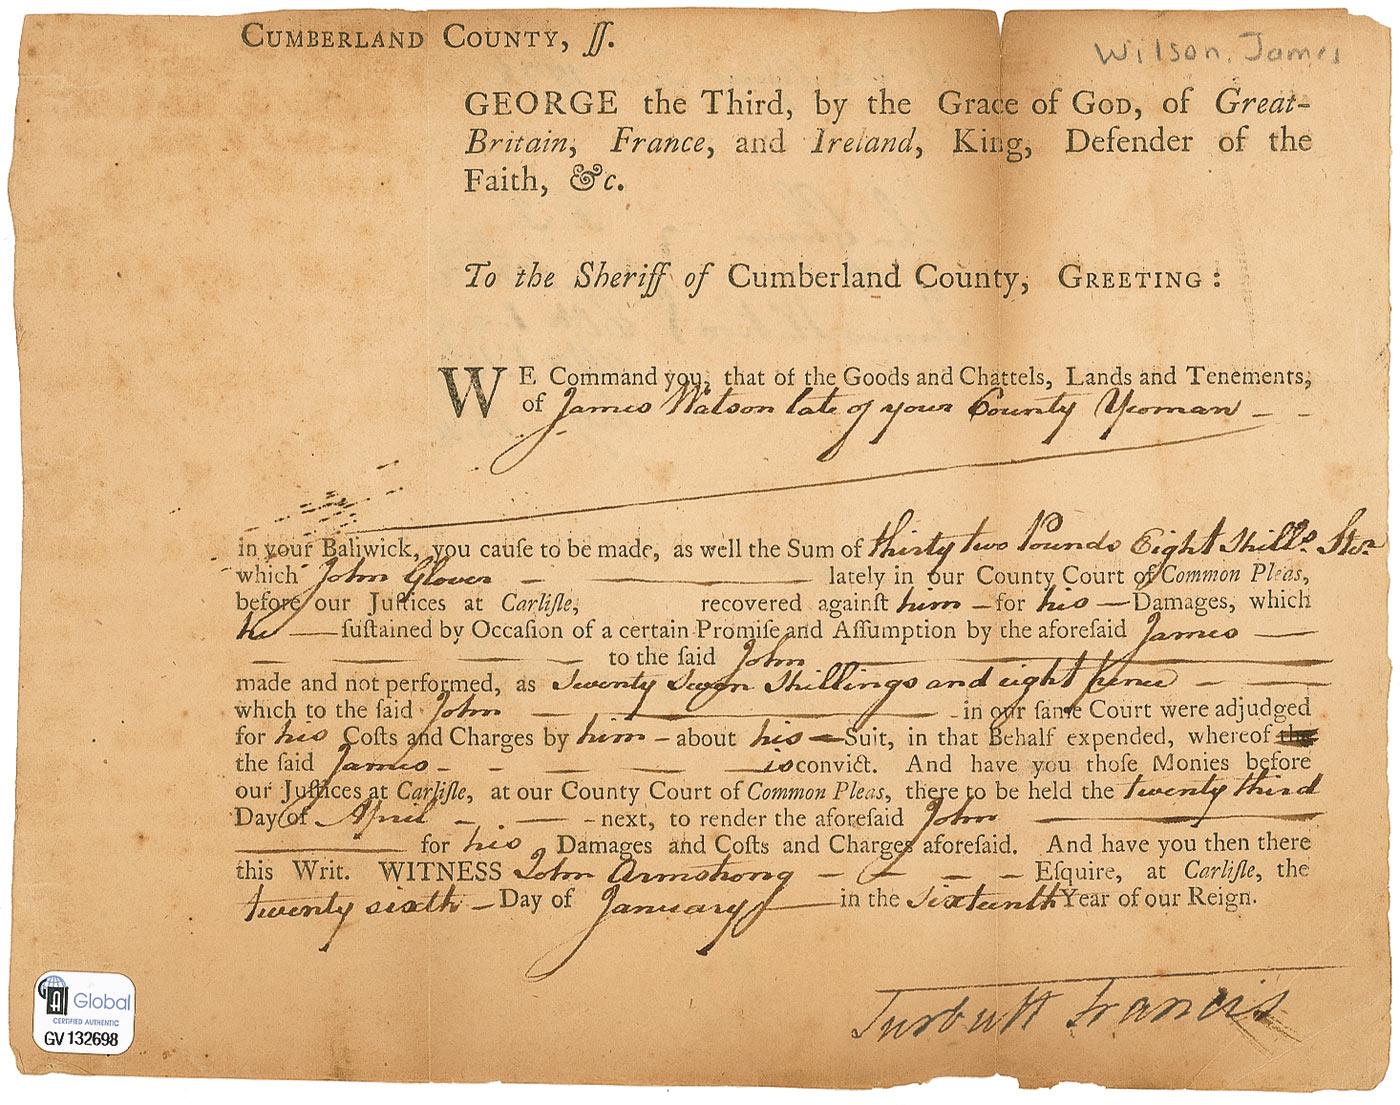 Wilson, James
CUMBERLAND COUNTY, ſſ.
GEORGE the Third, by the Grace of GOD, of Great-
Britain, France, and Ireland, King, Defender of the
Faith, &c.
To the Sheriff of Cumberland County, GREETING:
WE Command you, that of the Goods and Chattels, Lands and Tenements,
of James Watson late of your County Yeoman
in your Baliwick, you cauſe to be made, as well the Sum of thirty two Pounds Eight Shills.
which John Glover lately in our County Court of Common Pleas,
before our Juſtices at Carliſle, recovered againſt him for his Damages, which
he ſuſtained by Occaſion of a certain Promiſe and Aſſumption by the aforeſaid James
to the ſaid John
made and not performed, as Seventy Seven Shillings and eight Pence
which to the ſaid John in our ſame Court were adjudged
for his Coſts and Charges by him about his Suit, in that Behalf expended, whereof
the ſaid James is convict. And have you thoſe Monies before
our Juſtices at Carliſle, at our County Court of Common Pleas, there to be held the twenty third
Day of April next, to render the aforeſaid John
for his Damages and Coſts and Charges aforeſaid. And have you then there
this Writ. WITNESS John Armstrong Eſquire, at Carliſle, the
twenty sixth Day of January in the sixteenth Year of our Reign.
Turbutt Francis
AI Global
CERTIFIED AUTHENTIC
GV 132698